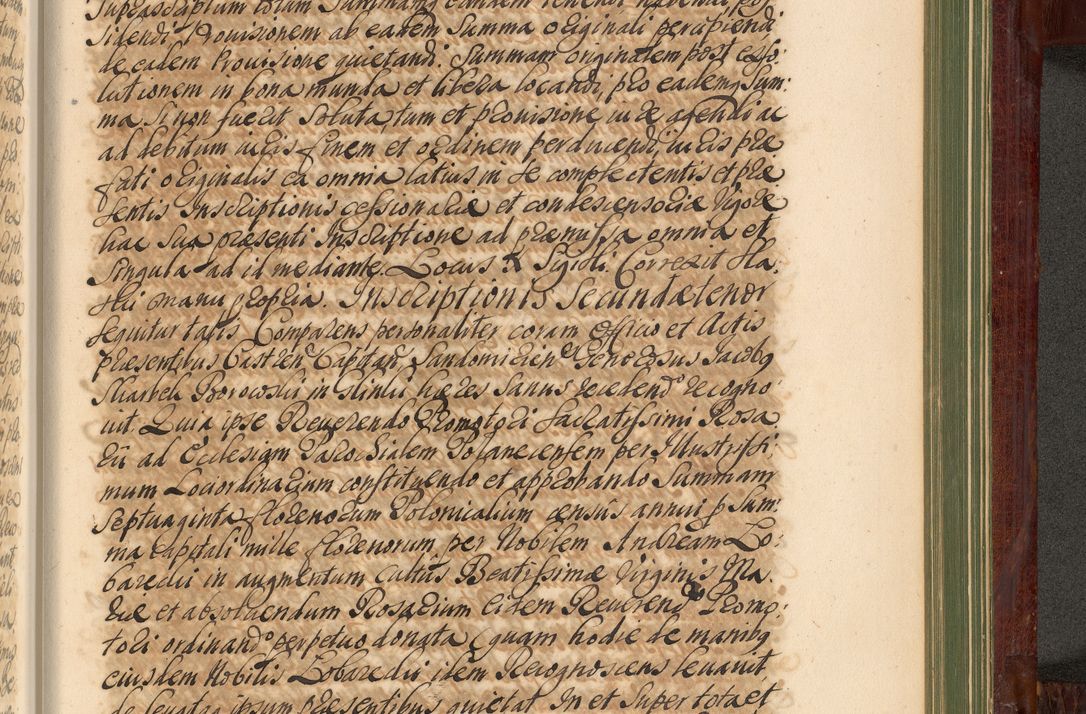 Suprascriptum totam Summam eandem tenendi habendi pos-
sidendi Provisionem ab eadem Summa originali percipiendi
de eadem Provisione quietandi. Summam originalem post exso-
lutionem in bona munda et libera locandi, pro eademq Sum:
ma Si non fuerit Soluta, tum et provisione iure agendi ac
ad debitum iuris finem et ordinem perducendi, iuris præ
fati originalis ea omnia latius in se complectentis et præ
sentis Inscriptionis cessionariæ et condescensoriæ Vigore
hac Sua præsenti Inscriptione ad præmissa omna et
Singula ad id mediante. Locus Sigilli. Correxit Ha:
Ski manu propria. Inscriptionis Secundæ tenor
Sequitur talis Comparens personaliter coram Officio et Actis
præsentibus Castren Capitan Sandomirien Generosus Jacobq
Skarbek Borowski in Slinki hæres Sanus recedend° recogno
vit. Quia ipse Reverendo Promotori Sacratissimi Rosa
rii ad Ecclesiam Parochialem Polanecensem per Illustrissi
mum Lociordinarium constituendo et approbando Summam
Septuaginta florenorum Polonicalium census annui p Sum:
ma capitali mille florenorum per Nobilem Andream Lo:
baredii in augmentum Cultus Beatissimæ Virginis Ma:
riæ et absolvendum Rosarium Eidem Reverend° Promo:
tori ordinand° perpetuo donata (quam hodie de manibq
eiusdem Nobilis Lobaredii idem Recognoscens levavit
de levatq ipsum præsentibus quietat In et Super tota et